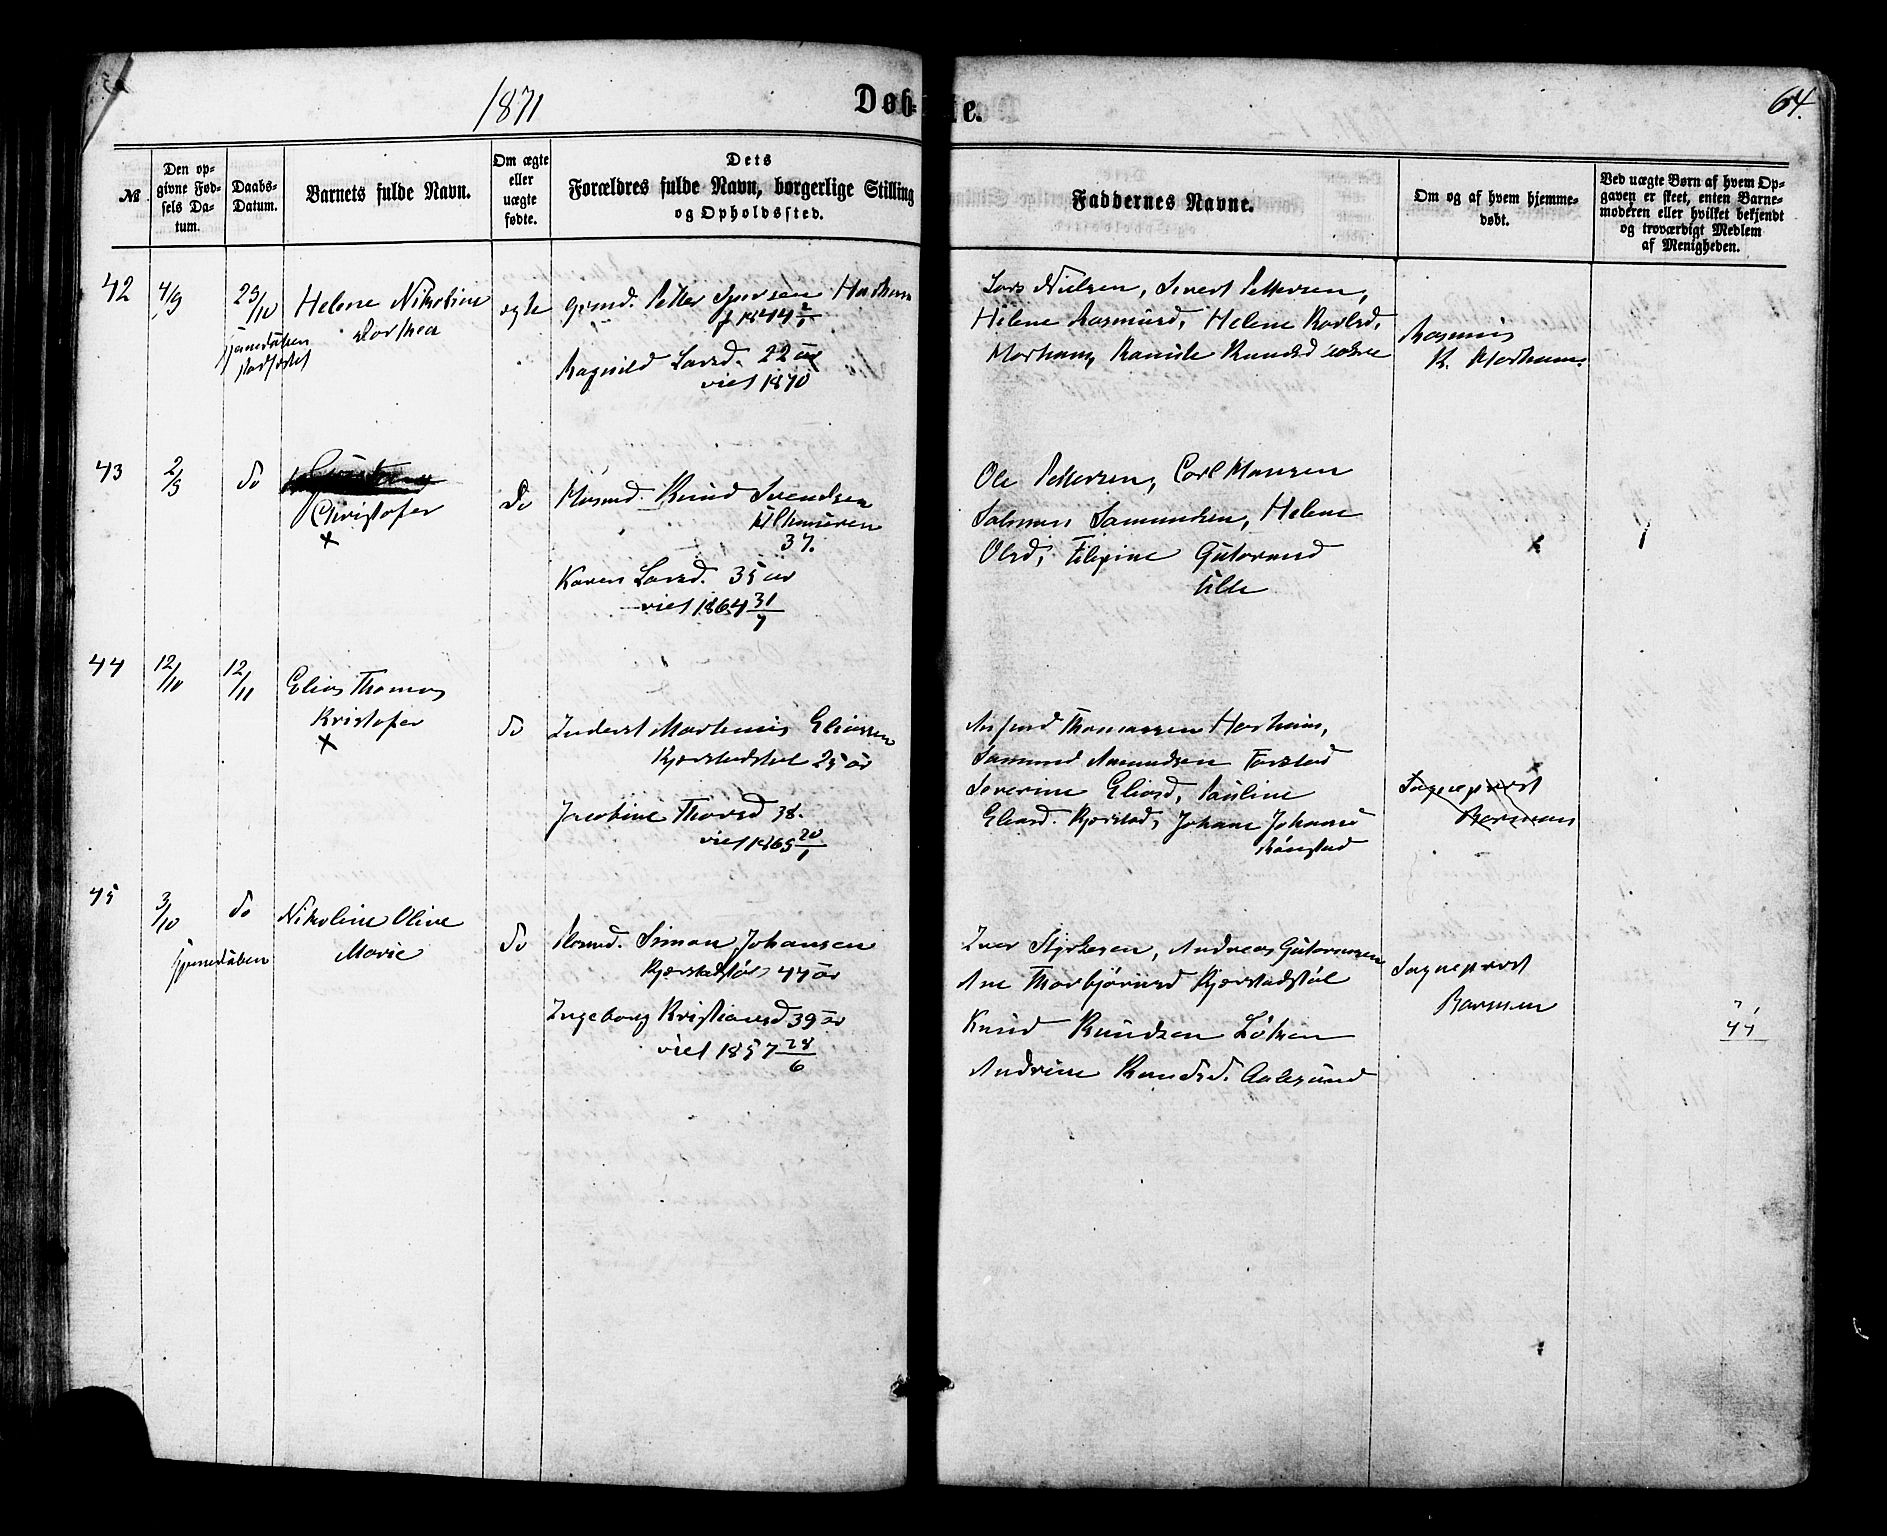 1871
Døb-
te.
64.
No
Den op-
givne Fød-
sels Da-
tum.
Daabs-
Datum.
Barnets fulde Navn.
Om ægte
eller
uægte
fødte.
Dets
Forældres fulde Navn, borgerlige Stilling
og Opholdssted.
Faddernes Navne.
Om og af hvem hjemme-
døbt.
Ved uægte Børn af hvem Op-
gaven er skeet, enten Barne-
moderen eller hvilket bekjendt
og troværdigt Medlem
af Menigheden.
42
4/9
29/10
Hjemedøben
stadfæstet
Helene Nikoline
Dorthea
ægte
Petter Harham
f 1844 2/1
Ragnild Larsd. 22 aar
viet 1870
Lars Nielsen, Sivert Pettersen,
Helene Rasmusd, Helene
Harham, Knudsd
Rasmus
K. Harham.
43
2/9
do
Christofer
x
do
Husmd. Knud Svendsen
37.
Karen Larsd. 35 aar
viet 1864 31/7
Ole Pettersen, Carl Hansen
Salmon Samundsen, Helene
Olsd, Filipine Gutormsd
Ulle
x
1
44
12/10
12/11
Elias Thomas
Kristofer
x
do
Inderst Martinus Eliassen
Kjærstadstøl 25 aar
Jacobine Thorsd 38.
viet 1865 20/1
Thomassen Harham,
Samund Amundsen
Severine Eliasd, Pauline
Eliasd. Kjærstad, Johane
x
Sogneprest
45
3/10
do
hjemedøben
Nikoline Olive
Marie
do
Plasmd. Simon Johansen
Kjærstadstøl 44 aar
Ingeborg Kristiansd 39 aar
viet 1857 28/6
Iver Styrkesen, Andreas Gutormsen
Ane Thorbjørnsd Kjærstadstøl
Knud Knudsen Løken
Andrine Knudsd. Aalesund
Sogneprest
44